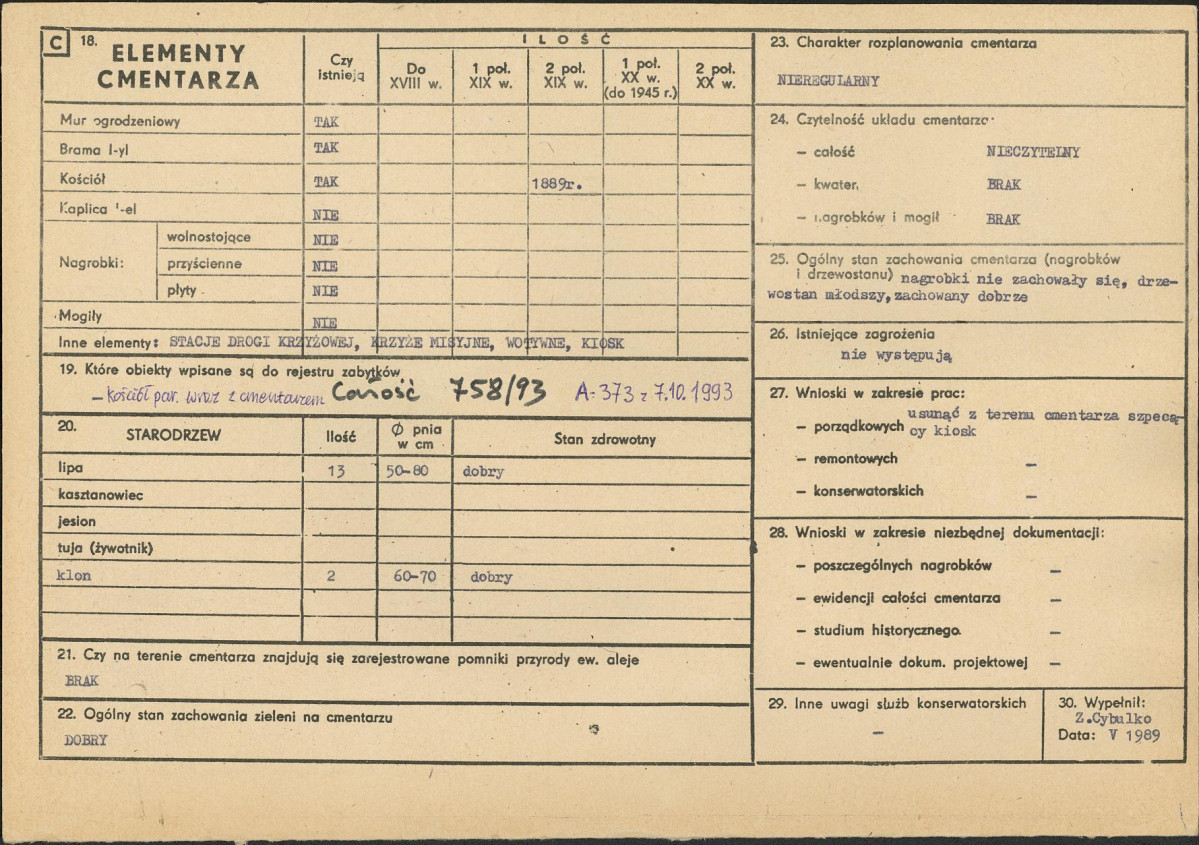 C 18. ELEMENTY CMENTARZA
Czy istnieją
ILOŚĆ
Do XVIII w.
1 poł. XIX w.
2 poł. XIX w.
1 poł. XX w. (do 1945 r.)
2 poł. XX w.
Mur ogrodzeniowy TAK
Brama I-yl TAK
Kościół TAK 1889r.
Kaplica '-el NIE
Nagrobki:
wolnostojące NIE
przyścienne NIE
płyty NIE
Mogiły NIE
Inne elementy: STACJE DROGI KRZYŻOWEJ, KRZYŻE MISYJNE, WOTYWNE, KIOSK
19. Które obiekty wpisane są do rejestru zabytków
– kościół par. wraz z cmentarzem Całość 758/93 A-373 z 7.10.1993
20. STARODRZEW Ilość Ø pnia w cm Stan zdrowotny
lipa 13 50-80 dobry
kasztanowiec
jesion
tuja (żywotnik)
klon 2 60-70 dobry
21. Czy na terenie cmentarza znajdują się zarejestrowane pomniki przyrody ew. aleje
BRAK
22. Ogólny stan zachowania zieleni na cmentarzu
DOBRY
23. Charakter rozplanowania cmentarza
NIEREGULARNY
24. Czytelność układu cmentarza
– całość NIECZYTELNY
– kwater. BRAK
– nagrobków i mogił BRAK
25. Ogólny stan zachowania cmentarza (nagrobków
i drzewostanu) nagrobki nie zachowały się, drze-
wostan młodszy, zachowany dobrze
26. Istniejące zagrożenia
nie występują
27. Wnioski w zakresie prac:
– porządkowych usunąć z terenu cmentarza szpecą-
cy kiosk
– remontowych –
– konserwatorskich –
28. Wnioski w zakresie niezbędnej dokumentacji:
– poszczególnych nagrobków –
– ewidencji całości cmentarza –
– studium historycznego. –
– ewentualnie dokum. projektowej –
29. Inne uwagi służb konserwatorskich
–
30. Wypełnił:
Z.Cybulko
Data: V 1989